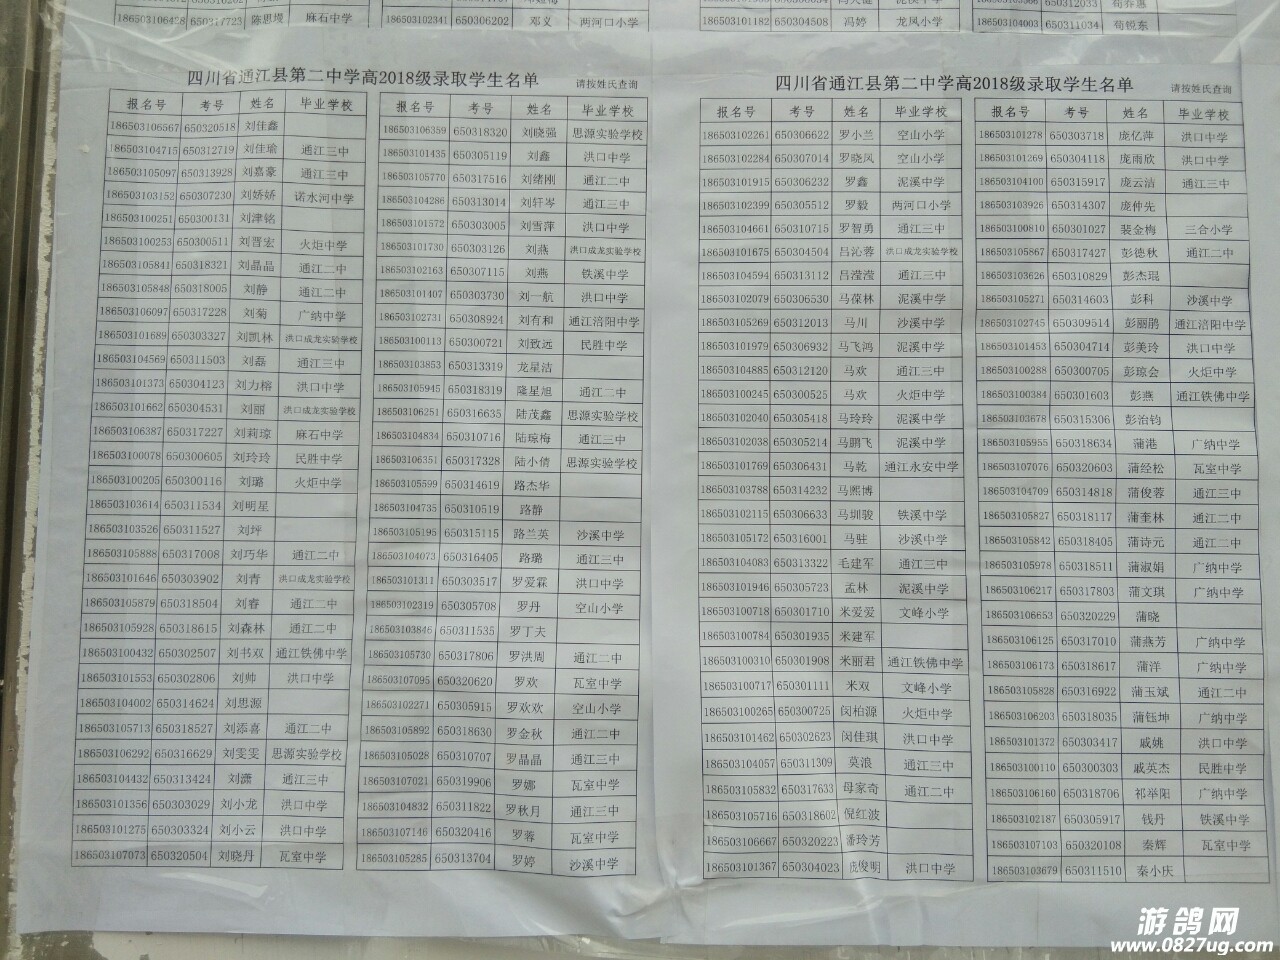 186503106428 650317723 陈思堤 麻石中学
186503102341 650306202 邓义 两河口小学
186503101182 650304508 冯婷 龙凤小学
186503104003 650311034 荀锐东
四川省通江县第二中学高2018级录取学生名单 请按姓氏查询
报名号 考号 姓名 毕业学校
186503106567 650320518 刘佳鑫
186503104715 650312719 刘佳瑜 通江三中
186503105097 650313928 刘嘉豪 通江三中
186503103152 650307230 刘娇娇 诺水河中学
186503100251 650300131 刘津铭
186503100253 650300511 刘晋宏 火炬中学
186503105841 650318321 刘晶晶 通江二中
186503105848 650318005 刘静 通江二中
186503106097 650317228 刘菊 广纳中学
186503101689 650303327 刘凯林 洪口成龙实验学校
186503104569 650311503 刘磊 通江三中
186503101373 650304123 刘力榕 洪口中学
186503101662 650304531 刘丽 洪口成龙实验学校
186503106387 650317227 刘莉琼 麻石中学
186503100078 650300605 刘玲玲 民胜中学
186503100205 650300116 刘璐 火炬中学
186503103614 650311534 刘明星
186503103526 650311527 刘坪
186503105888 650317008 刘巧华 通江二中
186503101646 650303902 刘青 洪口成龙实验学校
186503105879 650318504 刘睿 通江二中
186503105928 650318615 刘森林 通江二中
186503100432 650302507 刘书双 通江铁佛中学
186503101553 650302806 刘帅 洪口中学
186503104002 650314624 刘思源
186503105713 650318527 刘添喜 通江二中
186503106292 650316629 刘雯雯 思源实验学校
186503104432 650313424 刘潇 通江三中
186503101356 650303029 刘小龙 洪口中学
186503101275 650303324 刘小云 洪口中学
186503107073 650320504 刘晓丹 瓦室中学
报名号 考号 姓名 毕业学校
186503106359 650318320 刘晓强 思源实验学校
186503101435 650305119 刘鑫 洪口中学
186503105770 650317516 刘绪刚 通江二中
186503104286 650313014 刘轩岑 通江三中
186503101572 650303005 刘雪萍 洪口中学
186503101730 650303126 刘燕 洪口成龙实验学校
186503102163 650307115 刘燕 铁溪中学
186503101407 650303730 刘一航 洪口中学
186503102731 650308924 刘有和 通江涪阳中学
186503100113 650300721 刘致远 民胜中学
186503103853 650313319 龙星洁
186503105945 650318319 隆星旭 通江二中
186503106251 650316635 陆茂鑫 思源实验学校
186503104834 650310716 陆琼梅 通江三中
186503106351 650317328 陆小倩 思源实验学校
186503105599 650314619 路杰华
186503104735 650310519 路静
186503105195 650315115 路兰英 沙溪中学
186503104073 650316405 路璐 通江三中
186503101311 650303517 罗爱霖 洪口中学
186503102319 650305708 罗丹 空山小学
186503103846 650311535 罗丁夫
186503105730 650317806 罗洪周 通江二中
186503107095 650320620 罗欢 瓦室中学
186503102271 650305915 罗欢欢 空山小学
186503105892 650318630 罗金秋 通江二中
186503105028 650310707 罗晶晶 通江三中
186503107021 650319906 罗娜 瓦室中学
186503104832 650311822 罗秋月 通江三中
186503107146 650320416 罗蓉 瓦室中学
186503105285 650313704 罗婷 沙溪中学
四川省通江县第二中学高2018级录取学生名单 请按姓氏查询
报名号 考号 姓名 毕业学校
186503102261 650306622 罗小兰 空山小学
186503102284 650307014 罗晓凤 空山小学
186503101915 650306232 罗鑫 泥溪中学
186503102399 650305512 罗毅 两河口小学
186503104661 650310715 罗智勇 通江三中
186503101675 650304504 吕沁蓉 洪口成龙实验学校
186503104594 650313112 吕滢滢 通江三中
186503102079 650306530 马葆林 泥溪中学
186503105269 650312013 马川 沙溪中学
186503101979 650306932 马飞鸿 泥溪中学
186503104885 650312120 马欢 通江三中
186503100245 650300525 马欢 火炬中学
186503102040 650305418 马玲玲 泥溪中学
186503102038 650305214 马鹏飞 泥溪中学
186503101769 650306431 马乾 通江永安中学
186503103788 650314232 马熙博
186503102115 650306633 马圳骏 铁溪中学
186503105172 650316001 马驻 沙溪中学
186503104083 650313322 毛建军 通江三中
186503101946 650305723 孟林 泥溪中学
186503100718 650301710 米爱爱 文峰小学
186503100784 650301935 米建军
186503100310 650301908 米丽君 通江铁佛中学
186503100717 650301111 米双 文峰小学
186503100265 650300725 闵柏源 火炬中学
186503101462 650302623 闵佳琪 洪口中学
186503104057 650311309 莫浪 通江三中
186503105832 650317633 母家奇 通江二中
186503105716 650318602 倪红波
186503106667 650320223 潘玲芳
186503101367 650304023 庞俊明 洪口中学
报名号 考号 姓名 毕业学校
186503101278 650303718 庞亿萍 洪口中学
186503101269 650304118 庞雨欣 洪口中学
186503104100 650315917 庞云洁 通江三中
186503103926 650314307 庞仲先
186503100810 650301027 裴金梅 三合小学
186503105867 650317427 彭德秋 通江二中
186503103626 650310829 彭杰琨
186503105271 650314603 彭科 沙溪中学
186503102745 650309514 彭丽鹃 通江涪阳中学
186503101453 650304714 彭美玲 洪口中学
186503100288 650300705 彭琼会 火炬中学
186503100384 650301603 彭燕 通江铁佛中学
186503103678 650315306 彭治钧
186503105955 650318634 蒲港 广纳中学
186503107076 650320603 蒲经松 瓦室中学
186503104709 650314818 蒲俊蓉 通江三中
186503105827 650318117 蒲奎林 通江二中
186503105842 650318405 蒲诗元 通江二中
186503105978 650318511 蒲淑娟 广纳中学
186503106217 650317803 蒲文琪 广纳中学
186503106653 650320229 蒲晓
186503106125 650317010 蒲燕芳 广纳中学
186503106173 650318617 蒲洋 广纳中学
186503105828 650316922 蒲玉斌 通江二中
186503106203 650318035 蒲钰坤 广纳中学
186503101372 650303417 戚姚 洪口中学
186503100110 650300303 戚英杰 民胜中学
186503106160 650318706 祁举阳 广纳中学
186503102187 650305917 钱丹 铁溪中学
186503107103 650320108 秦辉 瓦室中学
186503103679 650311510 秦小庆
游鸽网
www.0827ug.com